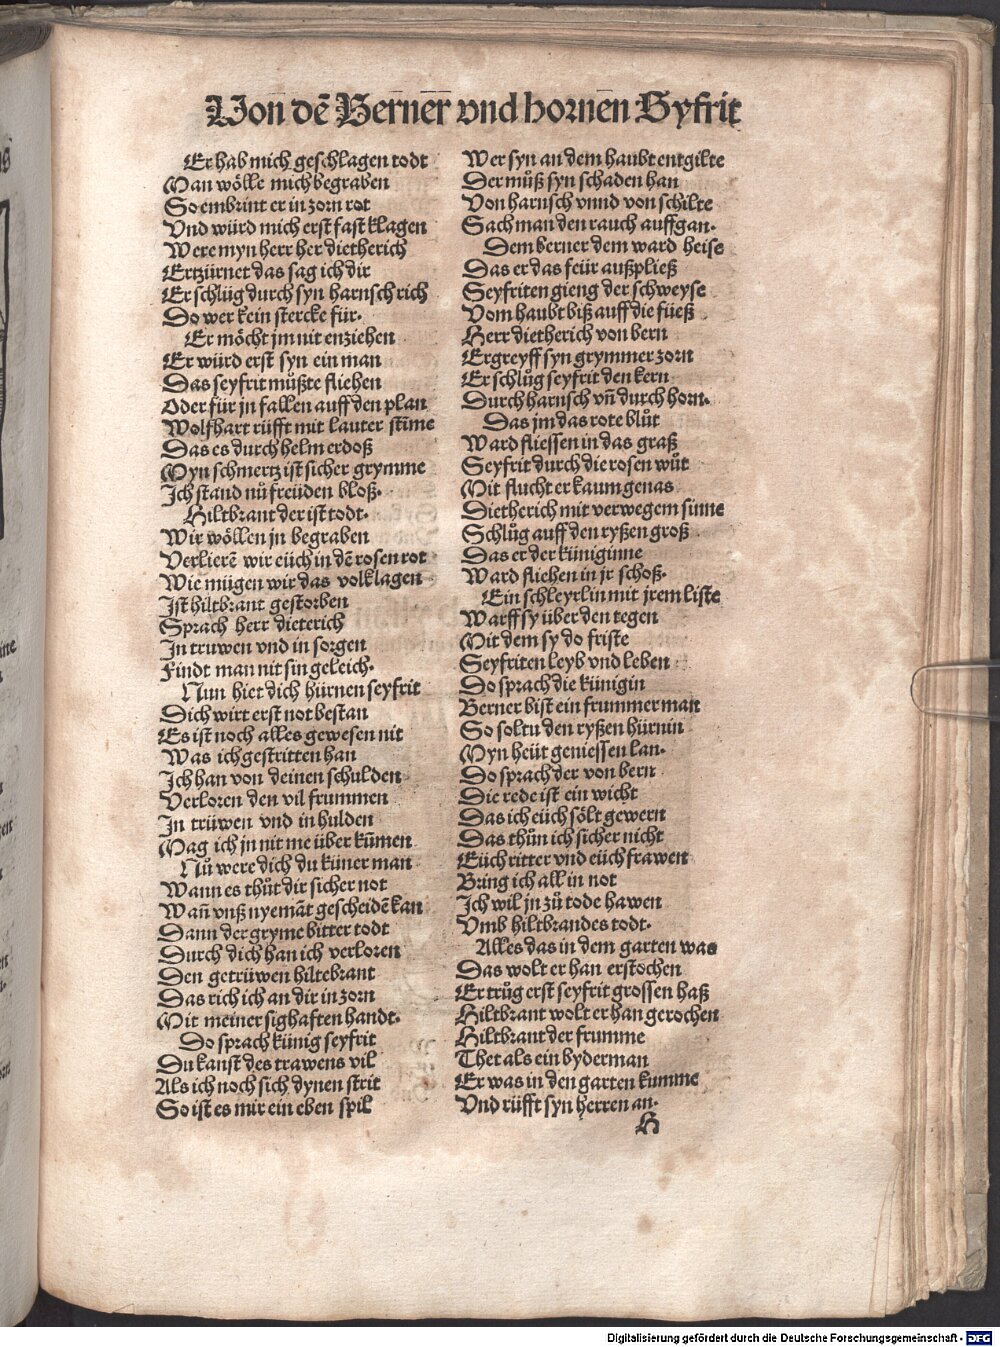 Von dē Berner vnd hornen Syfrit
Er hab mich geschlagen todt
Man wölle mich begraben
So embrint er in zorn rot
Vnd würd mich erst fast klagen
Were myn herr her dietherich
Ertzürnet das sag ich dir
Er schlüg durch syn harnsch rich
Do wer kein stercke für.
Er möcht jm nit enziehen
Er würd erst syn ein man
Das seyfrit müßte fliehen
Oder für jn fallen auff den plan
Wolfhart rüfft mit lauter stīme
Das es durch helm erdoß
Myn schmertz ist sicher grymme
Ich stand nů freüden bloß.
Hiltbrant der ist todt.
Wir wöllen jn begraben
Verlierē wir eüch in dē rosen rot
Wie mügen wir das volklagen
Ist hiltbrant gestorben
Sprach herr dieterich
In truwen vnd in sorgen
Findt man nit sin geleich.
Nun hiet dich hürnen seyfrit
Dich wirt erst not bestan
Es ist noch alles gewesen nit
Was ich gestritten han
Ich han von deinen schulden
Verloren den vil frummen
In trüwen vnd in hulden
Mag ich jn nit me über kūmen
Nů were dich du küner man
Wann es thůt dir sicher not
Wañ vnß nyemāt gescheidē kan
Dann der gryme bitter todt
Durch dich han ich verloren
Den getrüwen hiltebrant
Das rich ich an dir in zorn
Mit meiner sighaften handt.
Do sprach künig seyfrit
Du kanst des trawens vil
Als ich noch sich dynen strit
So ist es mir ein eben spil
Wer syn an dem haubt entgilte
Der můß syn schaden han
Von harnsch vnnd von schilte
Sach man den rauch auffgan.
Dem berner dem ward heise
Das er das feür außpließ
Seyfriten gieng der schweyse
Vom haubt biß auff die füeß
Herr dietherich von bern
Ergreyff syn grymmer zorn
Er schlůg seyfrit den kern
Durch harnsch vñ durch horn.
Das jm das rote blůt
Ward fliessen in das graß
Seyfrit durch die rosen wůt
Mit flucht er kaum genas
Dietherich mit verwegem sinne
Schlůg auff den ryßen groß
Das er der küniginne
Ward fliehen in jr schoß.
Ein schleyrlin mit jrem liste
Warff sy über den tegen
Mit dem sy do friste
Seyfriten leyb vnd leben
Do sprach die künigin
Berner bist ein frummer man
So soltu den ryßen hürnin
Myn heüt geniessen lan.
Do sprach der von bern
Die rede ist ein wicht
Das ich eüch sölt gewern
Das thůn ich sicher nicht
Eüch ritter vnd eüch frawen
Bring ich all in not
Ich wil jn zů tode hawen
Vmb hiltbrandes todt.
Alles das in dem garten was
Das wolt er han erstochen
Er trůg erst seyfrit grossen haß
Hiltbrant wolt er han gerochen
Hiltbrant der frumme
Thet als ein byderman
Er was in den garten kumme
Vnd rüfft syn herren an.
H
Digitalisierung gefördert durch die Deutsche Forschungsgemeinschaft - DFG